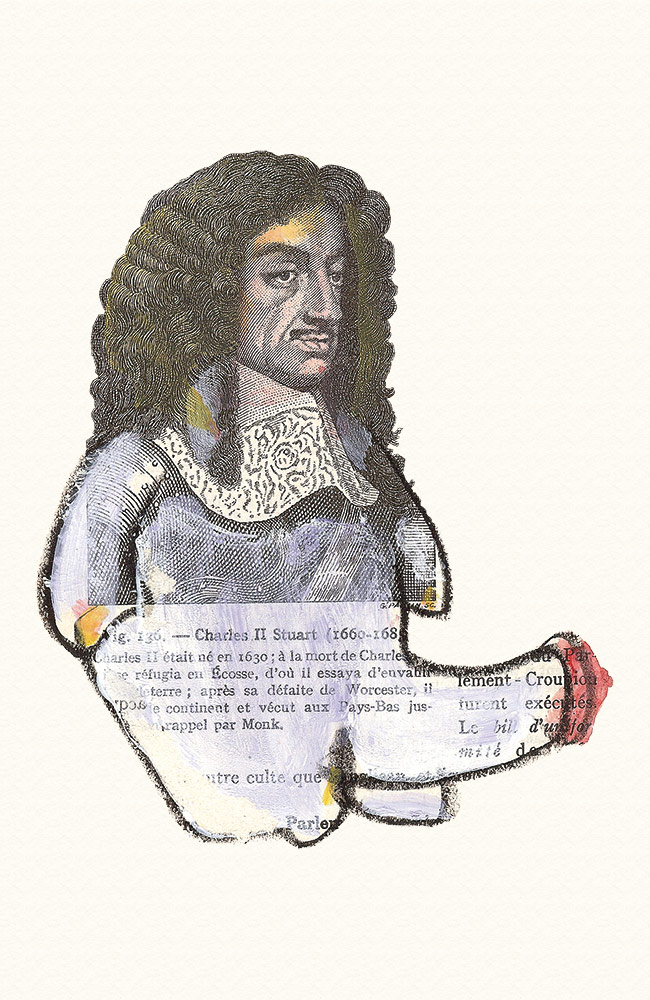 ig. 136. — Charles II Stuart (1660-168
Charles II était né en 1630 ; à la mort de Charles
se réfugia en Écosse, d'où il essaya d'envahi
leterre ; après sa défaite de Worcester, il
le continent et vécut aux Pays-Bas jus-
rappel par Monk.
utre culte que
Parle
du Par-
lement-Croupion
furent exécutés.
Le bill d'unifor
mité de